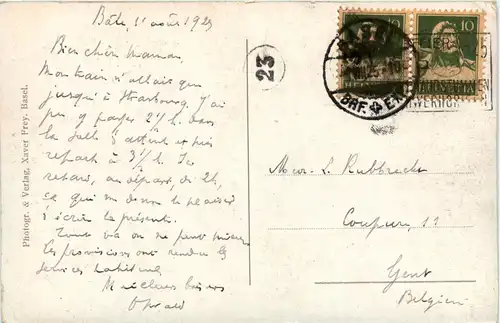 Bâle, 11 août 1925
Bien chère maman,
Mon train n'allait que
jusqu'à Strasbourg. J'ai
pu y passer 2½ h. dans
la salle d'attente et puis
repart à 3½ h. Le
retard, au départ, de 2h,
ce qui me donne le plaisir
d'écrire la présente.
Tout va on ne peut mieux
Les provisions ont rendu les
services
Meilleurs baisers
23
Photogr. & Verlag, Xaver Frey, Basel.
10 10
HELVETIA
BRF.
L. Rubbrecht
Coupure, 11
Gent
Belgien